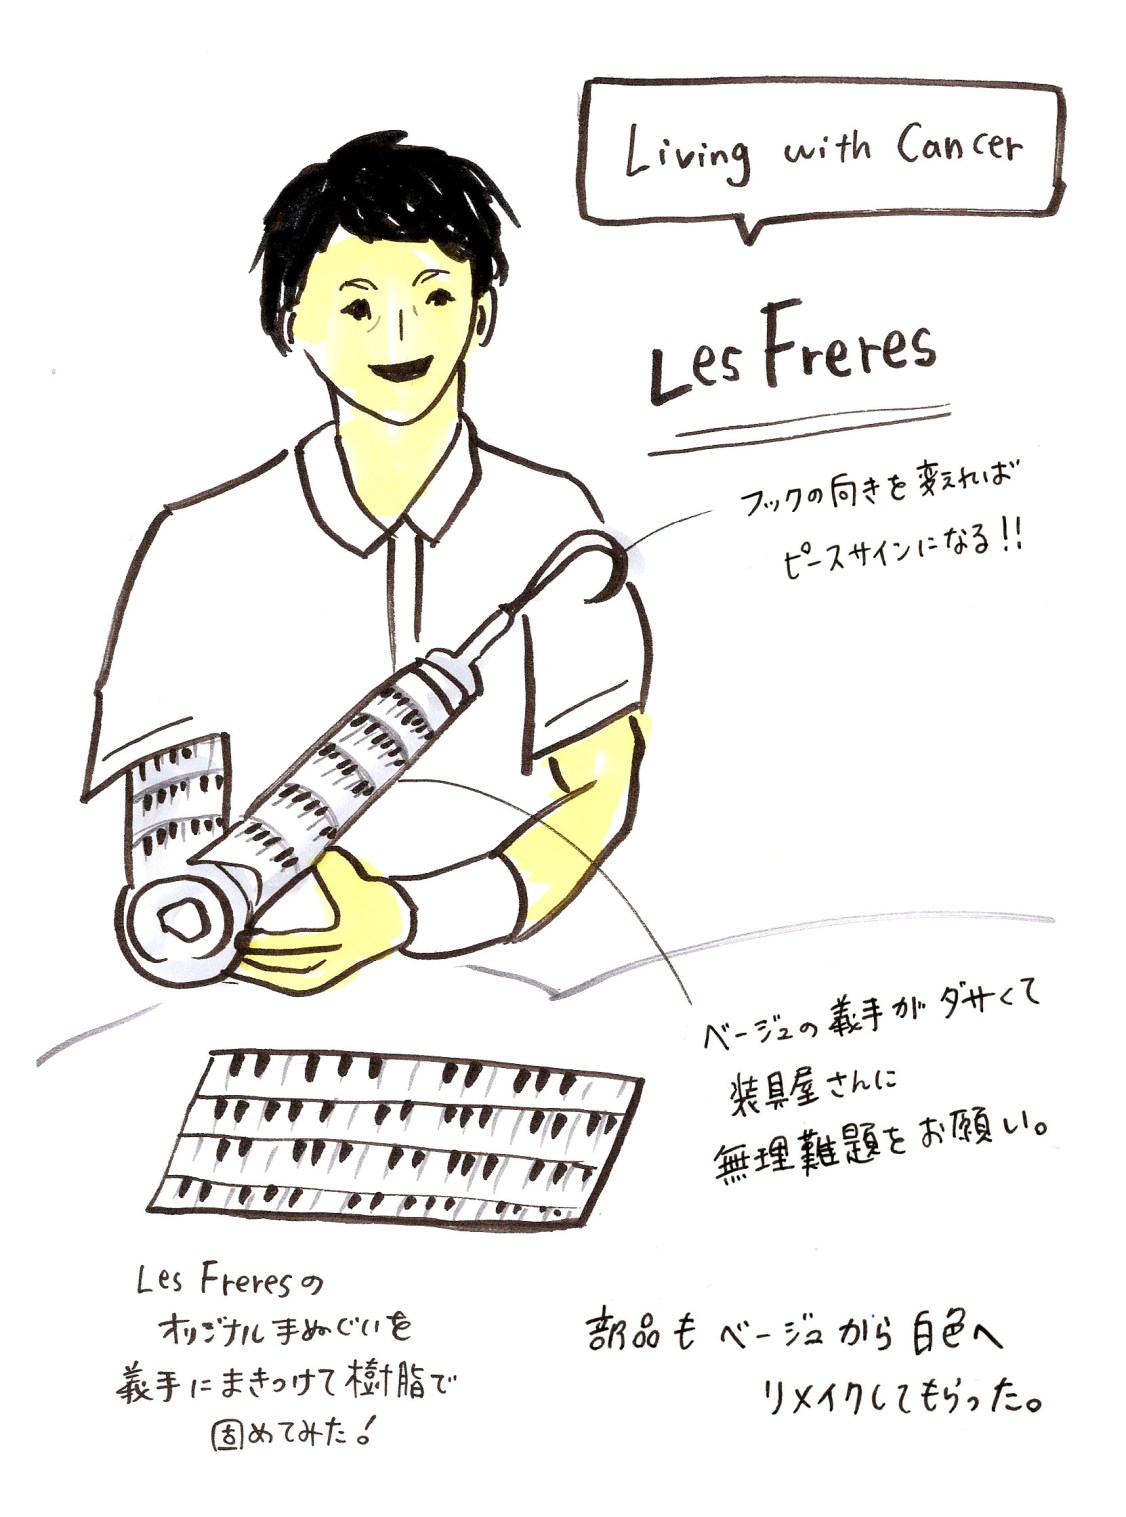 Living with Cancer
Les Freres
フックの向きを変えれば
ピースサインになる!!
ベージュの義手がダサくて
装具屋さんに
無理難題をお願い。
Les Freresの
オリジナル手ぬぐいを
義手にまきつけて樹脂で
固めてみた!
部品もベージュから白色へ
リメイクしてもらった。